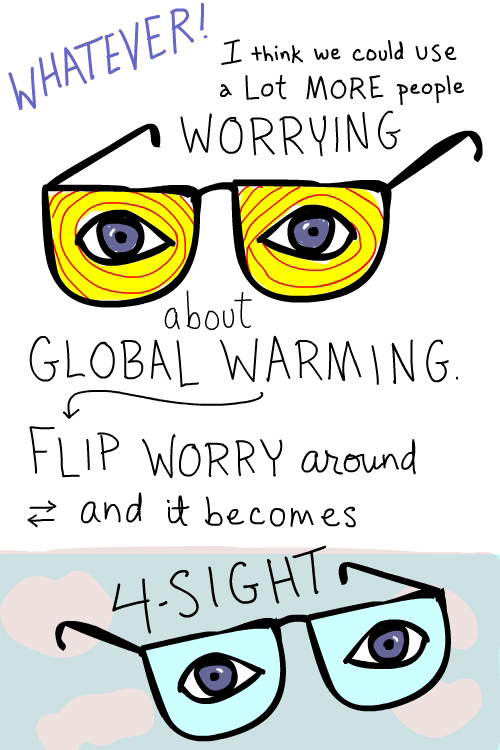 WHATEVER!
I think we could use
a Lot MORE people
WORRYING
about
GLOBAL WARMING.
FLIP WORRY around
⇄ and it becomes
4-SIGHT